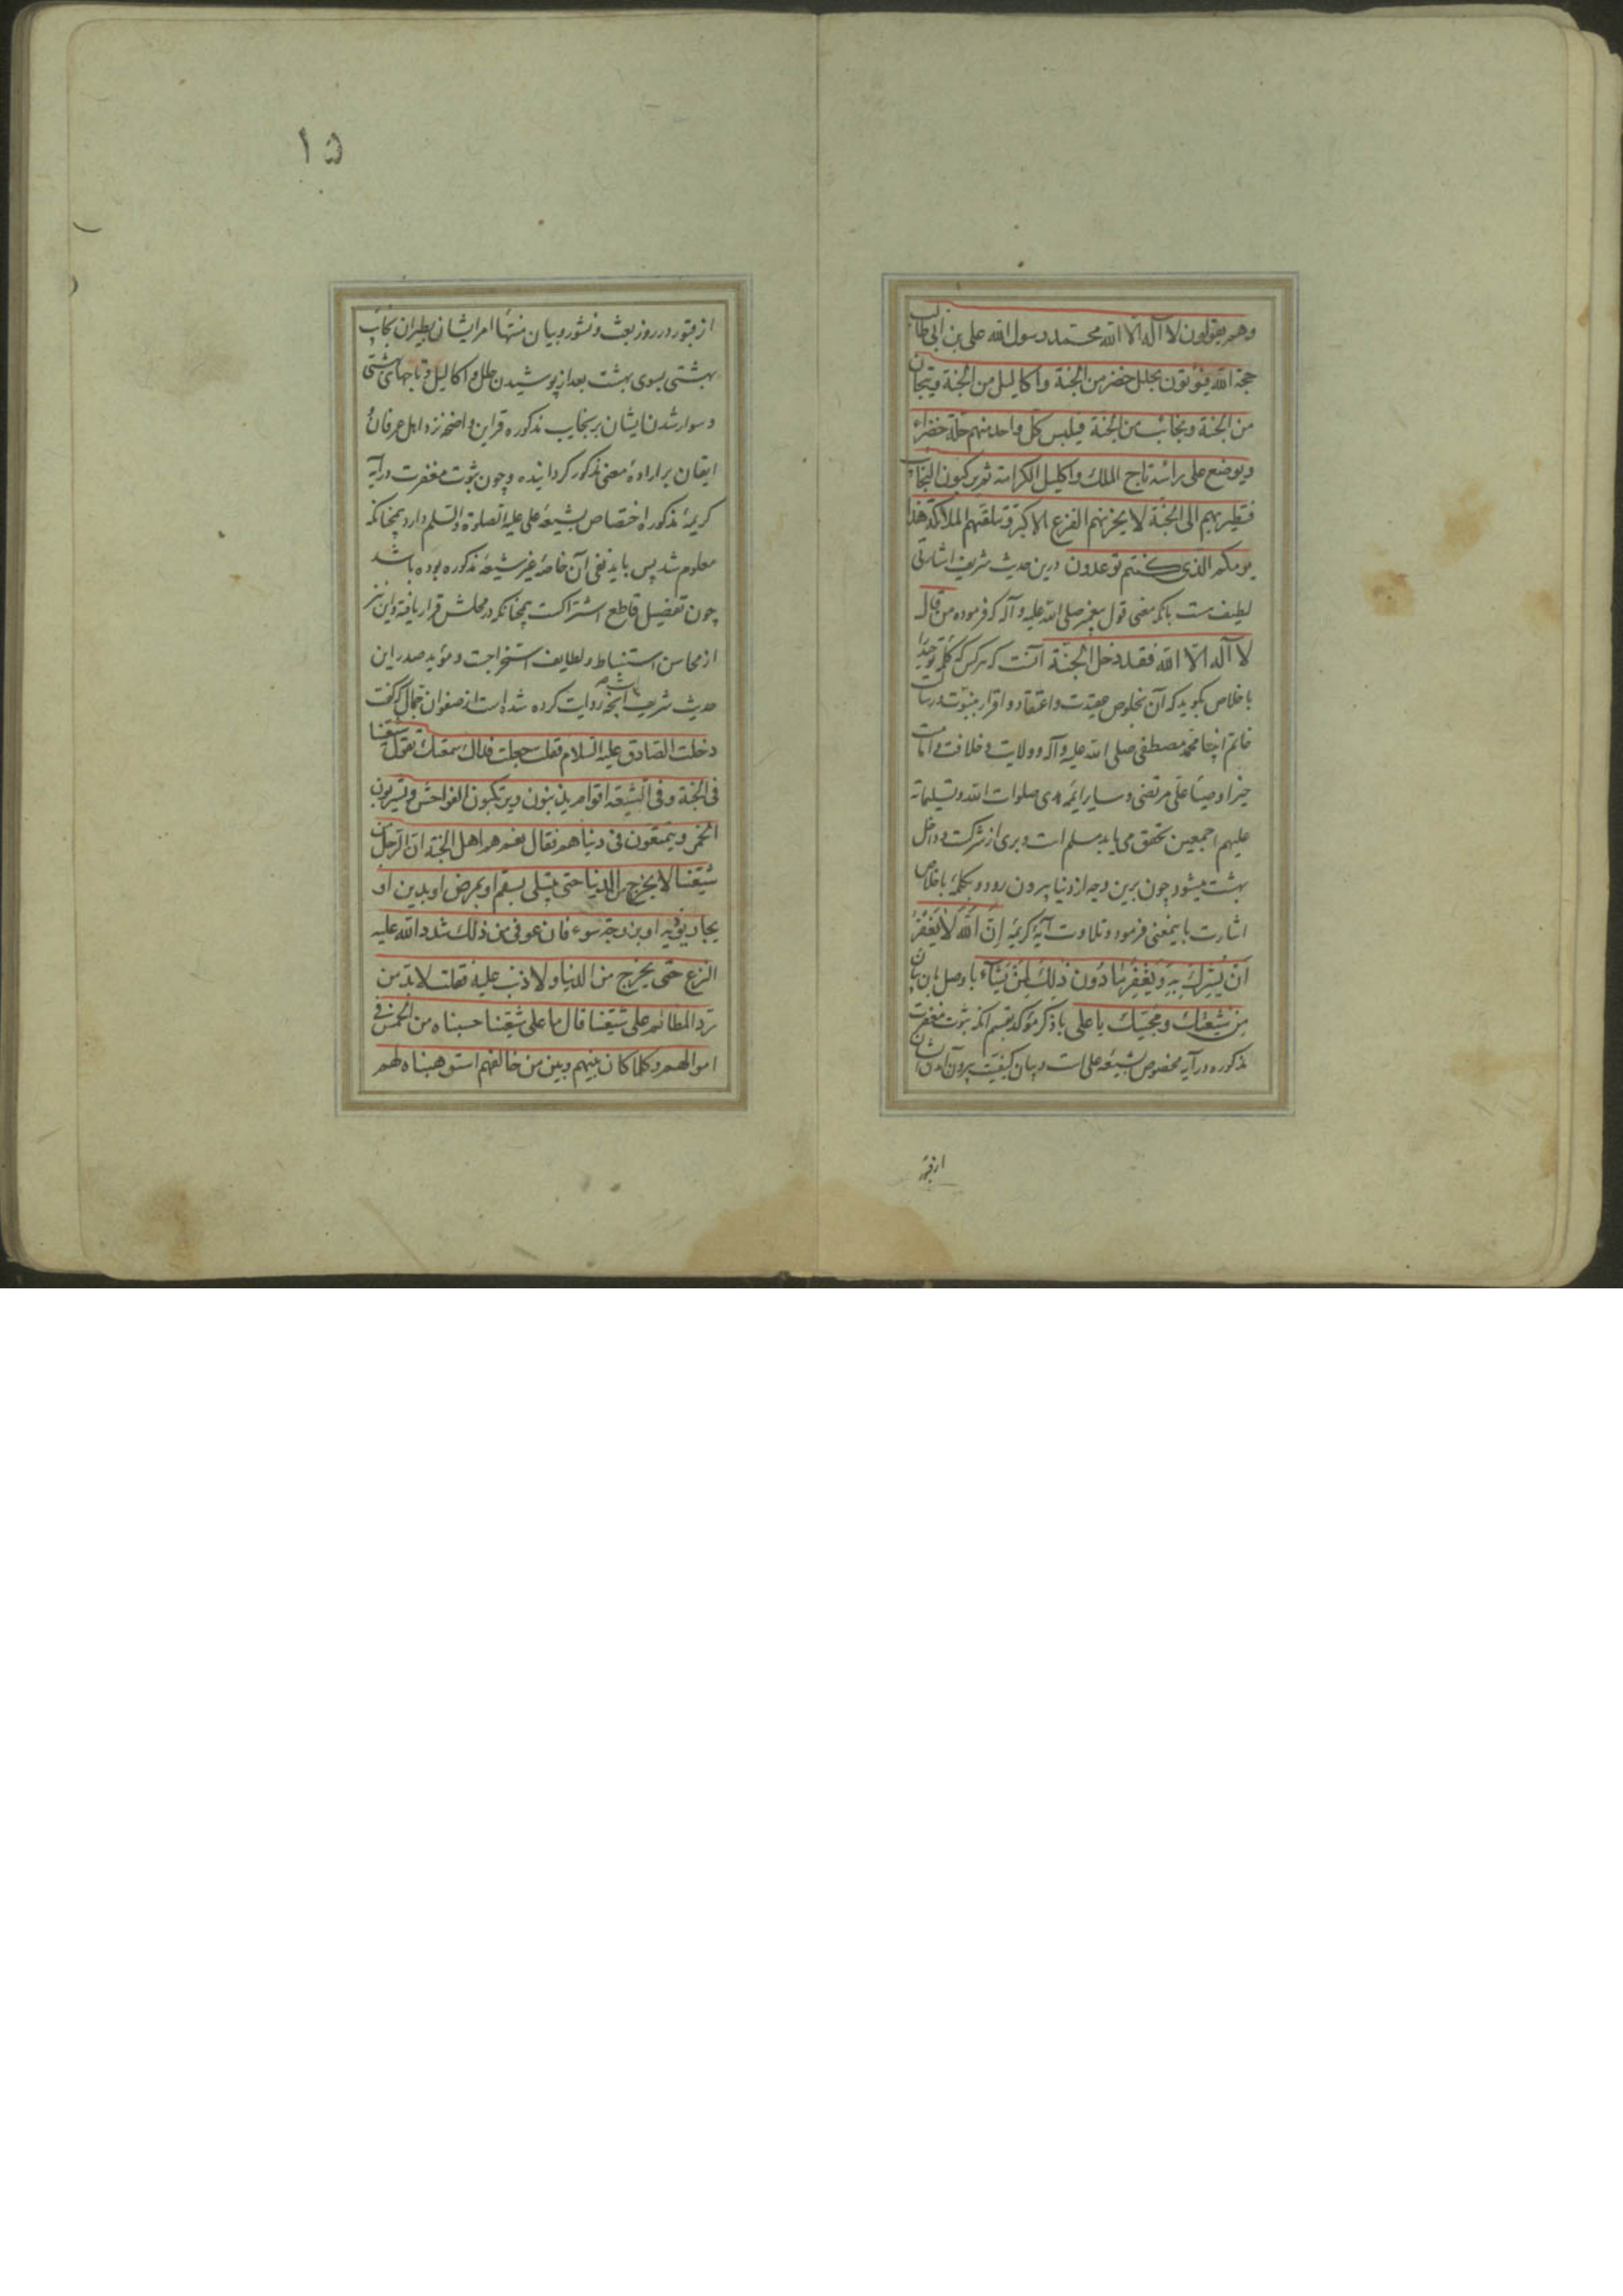 وهم یقولون لا اله الا الله محمد رسول الله علی بن ابی طالب
حجة الله فیؤتون بحلل خضر من الجنة واکالیل من الجنة وتیجان
من الجنة ونجائب من الجنة فیلبس کل واحد منهم حلة خضراء
ویوضع علی راسه تاج الملک واکلیل الکرامة ثم یرکبون النجائب
فتطیر بهم الی الجنة لا یحزنهم الفزع الاکبر وتتلقیهم الملائکة هذا
یومکم الذی کنتم توعدون درین حدیث شریف اشارتی
لطیف است بانکه معنی قول پیغمبر صلی الله علیه و آله که فرموده من قال
لا اله الا الله فقد دخل الجنة آنست که هر کس که کلمه توحید را
باخلاص بگوید که آن بخلوص عقیدت و اعتقاد و اقرار بنبوت و رسالت
خاتم انبیا محمد مصطفی صلی الله علیه و آله و ولایت و خلافت و امامت
خیر اوصیا علی مرتضی و سایر ائمه هدی صلوات الله و تسلیماته
علیهم اجمعین تحقق می یابد مسلم است و بری از شرکت و داخل
بهشت میشود چون برین وجه از دنیا بیرون رود و بکلمه باخلاص
اشارت باینمعنی فرمود و تلاوت آیه کریمه اِنَّ اللّٰهَ لا یَغْفِرُ
اَنْ یُشْرَکَ بِهِ وَ یَغْفِرُ ما دُونَ ذٰلِکَ لِمَنْ یَشاءُ با وصل بان بیان
مِن شیعتک و محبیک یا علی با ذکر مؤکد بقسم انکه ثبوت مغفرت
مذکوره در آیه مخصوص بشیعه علی است و بیان کیفیت بیرون آمدن ایشان
از قبور
۱۵
از قبور در روز بعث و نشور و بیان منتها امر ایشان بطیران نجایب
بهشتی بسوی بهشت بعد از پوشیدن حلل و اکالیل و تاجهای بهشتی
و سوار شدن ایشان بر نجایب مذکوره قراین واضحه نزد اهل عرفان و
ایقان بر اراده معنی مذکور گردانیده و چون ثبوت مغفرت در آیه
کریمه مذکوره اختصاص بشیعه علی علیه الصلوة والسلم دارد همچنانکه
معلوم شد پس باید نفی آن خاصه غیر شیعه مذکوره بوده باشد
چون تفضیل قاطع اشتراکست همچنانکه در محلش قرار یافته و این نیز
از محاسن استنباط و لطایف استخراجست و مؤید صدر این
حدیث شریف باشد آنچه روایت کرده شده است از صفوان جمال که گفت
دخلت الصادق علیه السلام فقلت جعلت فداک سمعتک تقول شیعتنا
فی الجنة وفی الشیعة اقوام یذنبون ویرتکبون الفواحش ویشربون
الخمر ویتمتعون فی دنیاهم فقال نعم هم اهل الجنة ان الرجل من
شیعتنا لا یخرج من الدنیا حتی یبتلی بسقم او بمرض او بدین او
بجار یؤذیه او بزوجة سوء فان عوفی من ذلک شدد الله علیه
النزع حتی یخرج من الدنیا ولا ذنب علیه فقلت لا بد من
رد المظالم علی شیعتنا قال ما علی شیعتنا حسبناه من الخمس فی
اموالهم وکلما کان بینهم وبین من خالفهم استوهبناه لهم